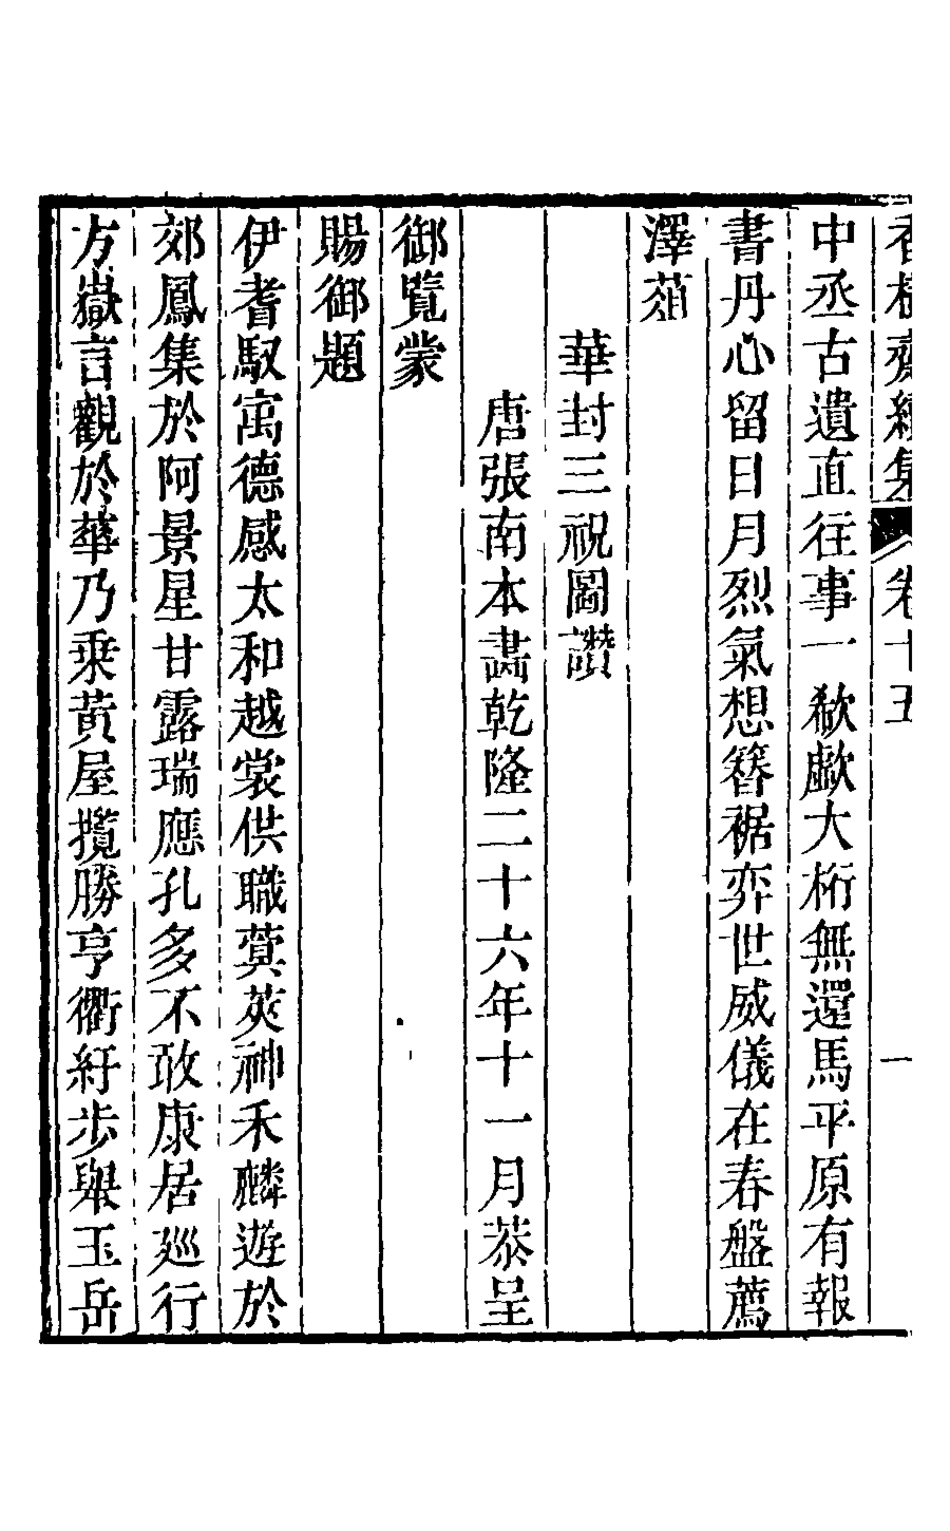 香樹齋續集 卷十五 一
中丞古遺直往事一欷歔大桁無還馬平原有報
書丹心留日月烈氣想簪裾弈世威儀在春盤薦
澤萡
華封三祝圖讚
唐張南本畫乾隆二十六年十一月恭呈
御覽蒙
賜御題
伊耆馭寓德感太和越裳供職蓂莢神禾麟遊於
郊鳳集於阿景星甘露瑞應孔多不敢康居巡行
方嶽言觀於華乃乗黃屋攬勝亨衢紆步舉玉岳